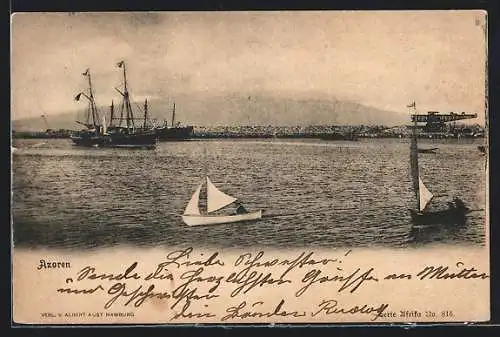 Azoren
Liebe Schwester!
Sende die herzlichsten Grüsse an Mutter
und Geschwister
dein Bruder Rudolf
VERL. V. ALBERT AUST HAMBURG
Serie Afrika No. 816.